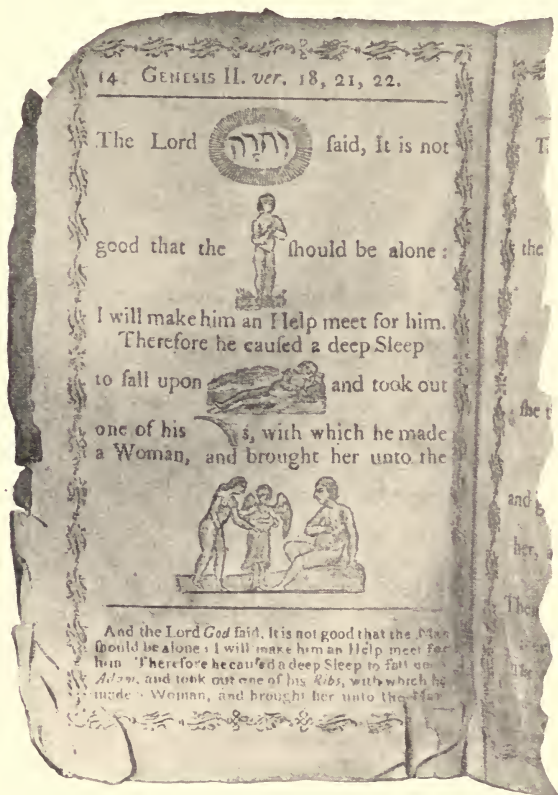 14 GENESIS II. ver. 18, 21, 22.
The Lord ſaid, It is not
good that the ſhould be alone :
I will make him an Help meet for him.
Therefore he cauſed a deep Sleep
to fall upon and took out
one of his s, with which he made
a Woman, and brought her unto the
And the Lord God ſaid, It is not good that the Man
ſhould be alone : I will make him an Help meet for
him Therefore he cauſed a deep Sleep to fall
Adam, and took out one of his Ribs, with which he
made Woman, and brought her unto the
the
ſhe
and
her,